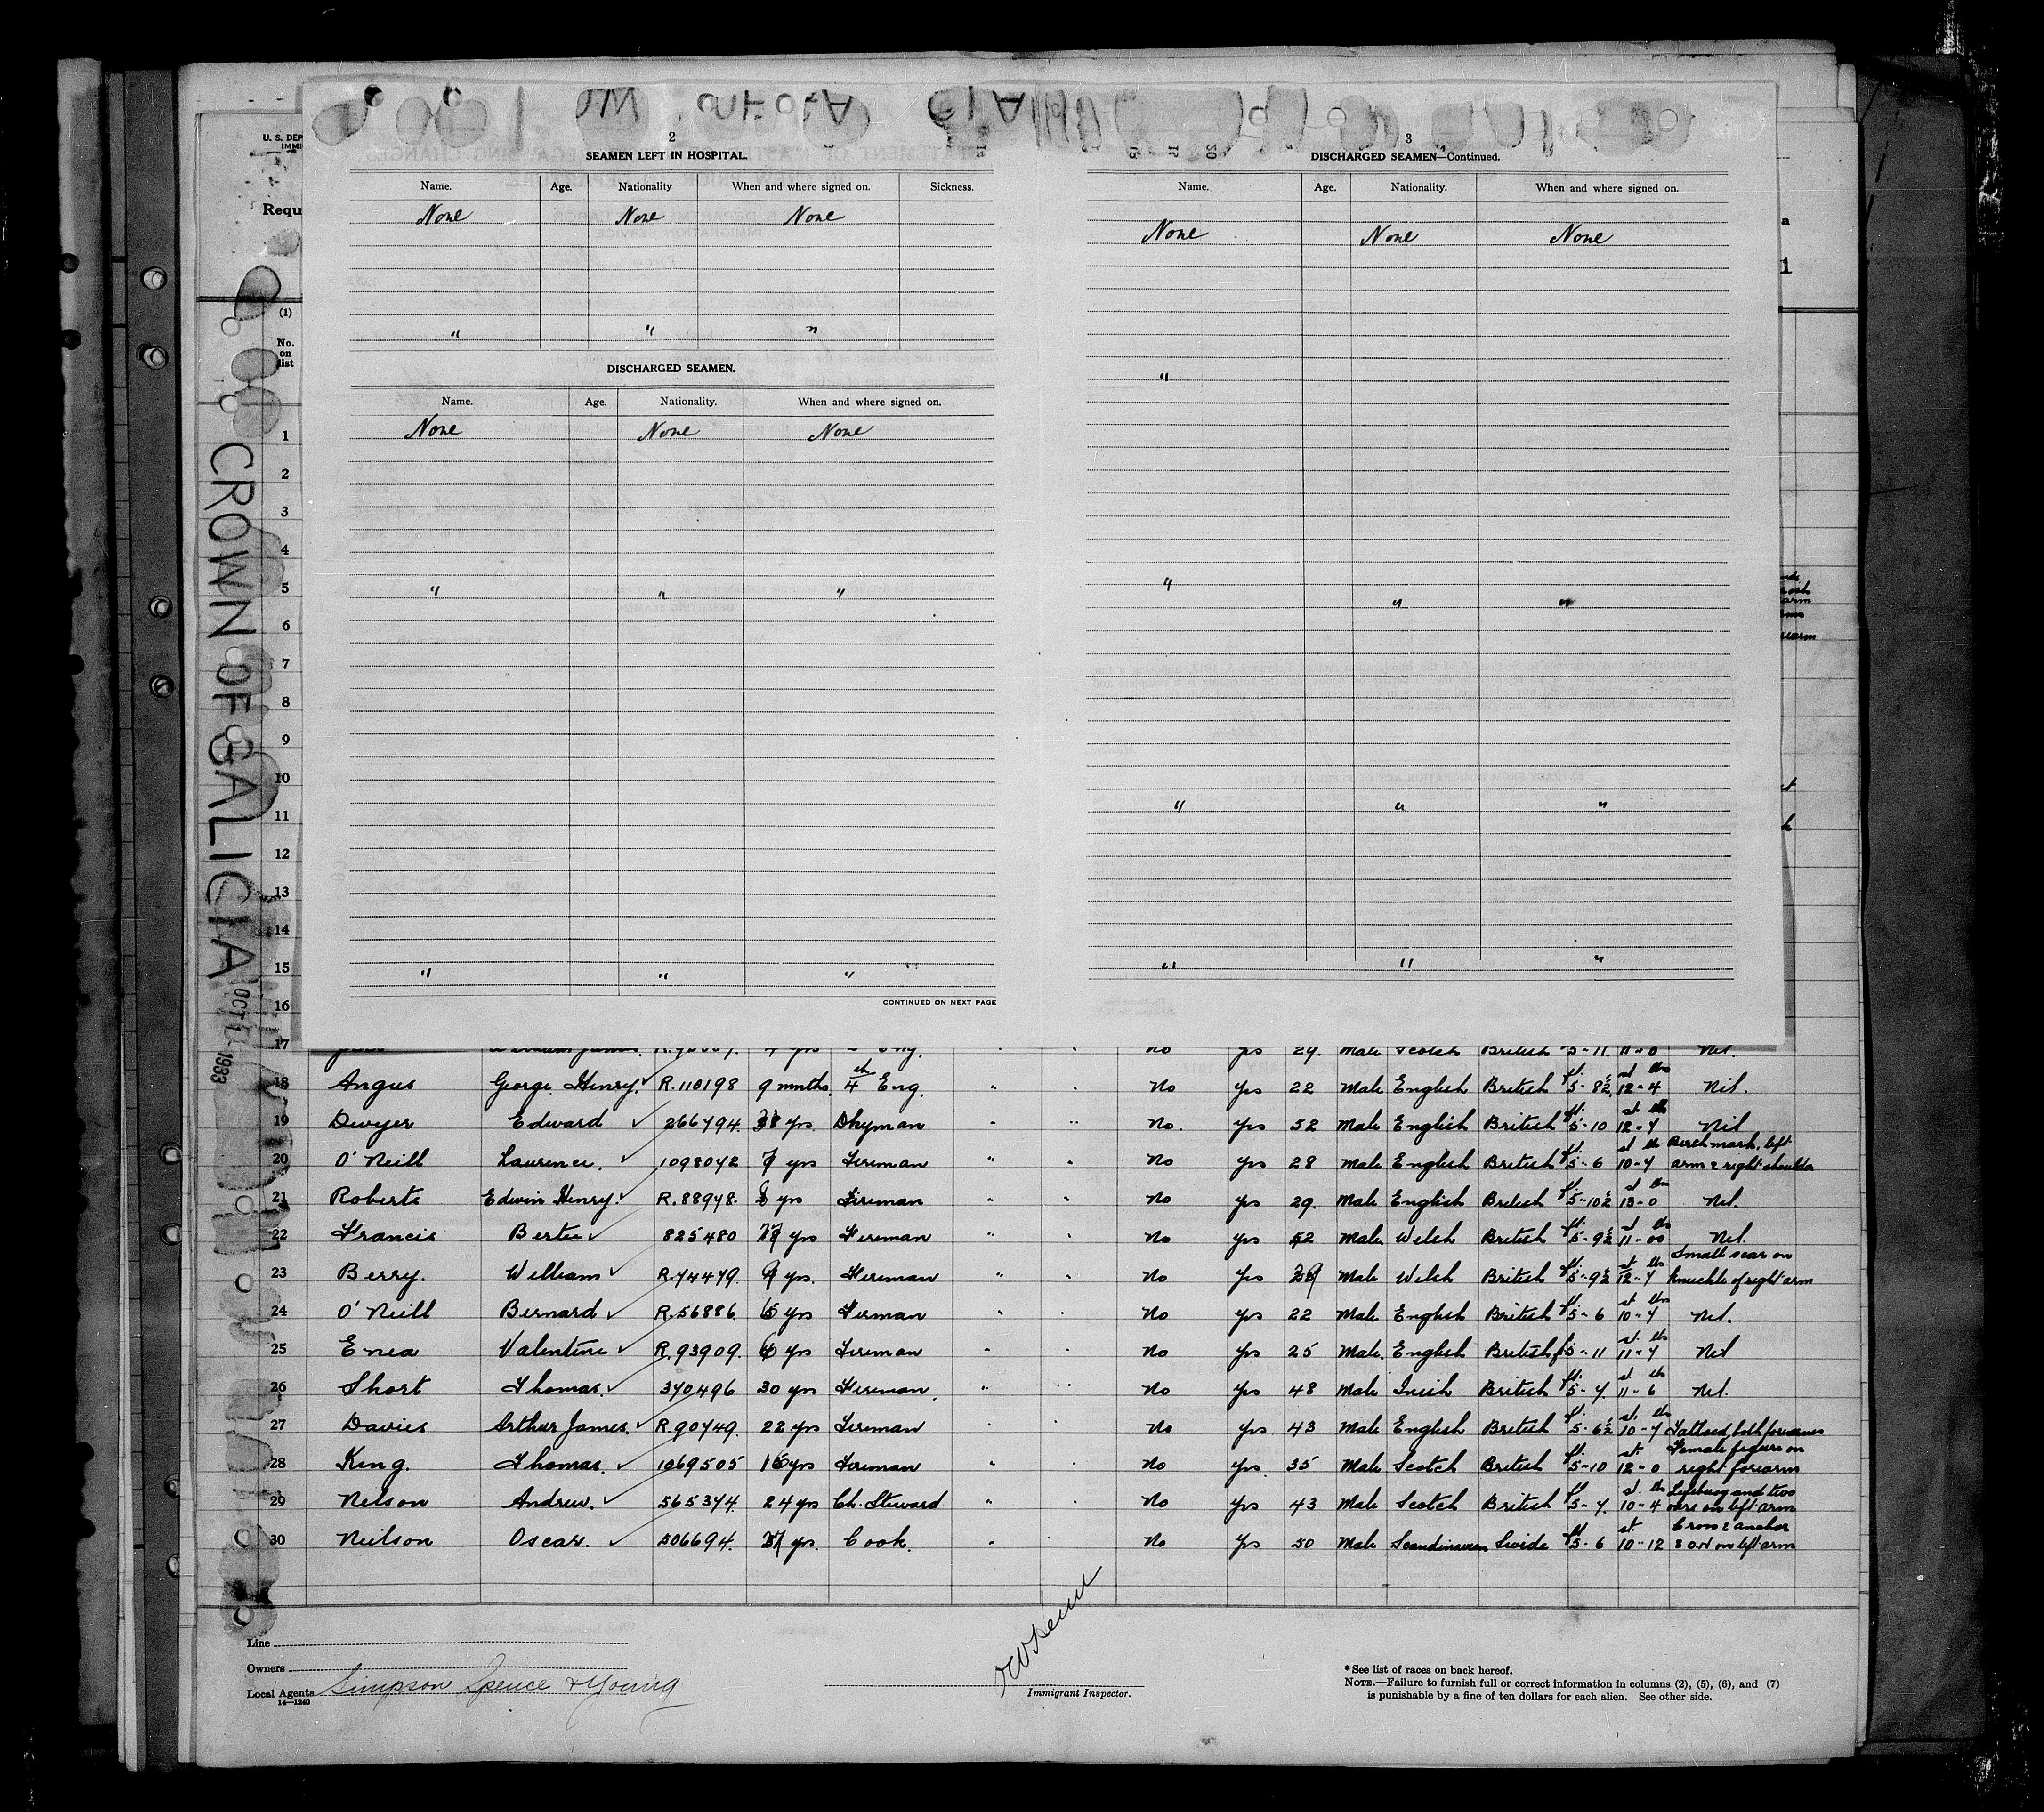 2
SEAMEN LEFT IN HOSPITAL.
Name. Age. Nationality When and where signed on. Sickness.
None None None
" " "
DISCHARGED SEAMEN.
Name. Age. Nationality. When and where signed on.
None None None
" " "
" " "
CONTINUED ON NEXT PAGE
3
DISCHARGED SEAMEN—Continued.
Name. Age. Nationality. When and where signed on.
None None None
"
" " "
" " "
" " "
U. S. DEP
IMMI
Requ
(1)
No.
on
list
1
2
3
4
5
6
7
8
9
10
11
12
13
14
15
16
17
CROWN OF GALICIA
OCT 1 1933
No Yes 29. Male Scotch British 5-11. 11-0 Nil.
18 Angus George Henry. R.110198 9 mnths. 4th Eng. " No Yes 22 Male English British ft. 5-8½ st lbs 12-4 Nil.
19 Dwyer Edward 266794. yrs. Dkyman " " No. Yes 52 Male English British ft. 5-10 st lbs 12-7 Nil
20 O'Neill Laurence. 1098042 7 yrs Fireman " " No Yes 28 Male English British ft. 5-6 st lb 10-7 Birth mark, left
arm & right shoulder
21 Roberts Edwin Henry. R.88948. yrs Fireman " " No Yes 29. Male English British ft. 5-10½ st lbs 13-0 Nil.
22 Francis Bertie 825480 yrs Fireman " " No Yes 52 Male. Welsh British ft. 5-9½ st lbs 11-00 Nil.
23 Berry. William R.74479. 9 yrs. Fireman " " No Yes Male Welsh British ft. 5-9½ st lbs 12-7 Small scar on
knuckle of right arm
24 O'Neill Bernard R.56886. yrs Firman " " No Yes 22 Male English British ft. 5-6 st lbs 10-7 Nil.
25 Enea Valentine R.93909. yrs Fireman " " No Yes 25 Male. English British ft. 5-11 st lbs 11-7 Nil
26 Short Thomas. 370496 30 yrs Fireman. " " No Yes 48 Male Irish British ft. 5-7. st lbs 11-6 Nil.
27 Davies Arthur James. R.90749. 22 yrs Fireman " " No Yes 43 Male English British ft. 5-6½ st. lbs 10-7 Tattoed both forearms
28 King. Thomas. 1069505 16 yrs Fireman " " No Yes. 35 Male Scotch British ft. 5-10 st 12-0 Female figure on
right forearm
29 Nelson Andrew. 565374. 24 yrs Ch. Steward " " No Yes 43 Male Scotch British ft 5-7. st. lbs 10-4 Lifebuoy and two
oars on left arm
30 Neilson Oscar. 506694. yrs. Cook. " " No Yes 50 Male Scandinavian Swide ft 5-6 st. 10-12 Cross & anchor
& O.N on left arm
Line
Owners
Local Agents Simpson Spence & Young
14—1240
Immigrant Inspector.
* See list of races on back hereof.
NOTE.—Failure to furnish full or correct information in columns (2), (5), (6), and (7)
is punishable by a fine of ten dollars for each alien. See other side.